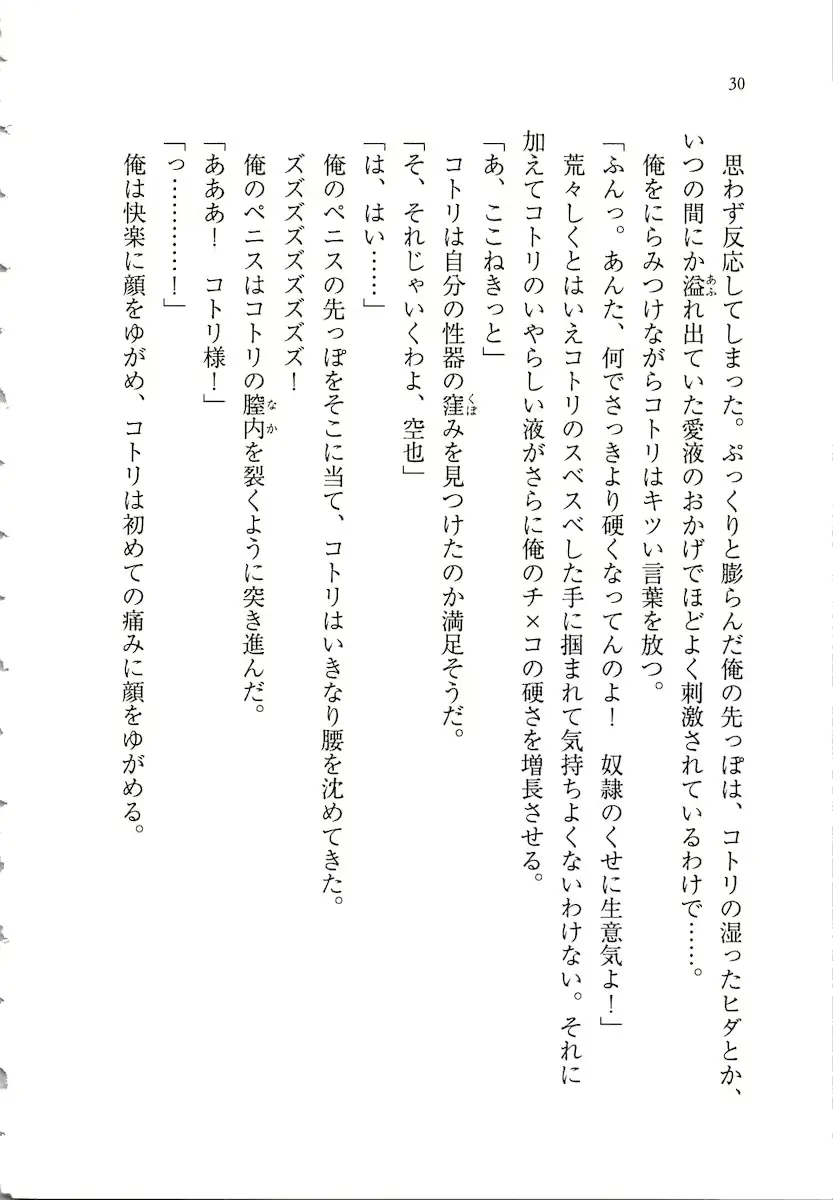 30
思わず反応してしまった。ぷっくりと膨らんだ俺の先っぽは、コトリの湿ったヒダとか、
いつの間にか溢れ出ていた愛液のおかげでほどよく刺激されているわけで……。
俺をにらみつけながらコトリはキツい言葉を放つ。
「ふんっ。あんた、何でさっきより硬くなってんのよ！　奴隷のくせに生意気よ！」
荒々しくとはいえコトリのスベスベした手に掴まれて気持ちよくないわけない。それに
加えてコトリのいやらしい液がさらに俺のチ×コの硬さを増長させる。
「あ、ここねきっと」
コトリは自分の性器の窪みを見つけたのか満足そうだ。
「そ、それじゃいくわよ、空也」
「は、はい……」
俺のペニスの先っぽをそこに当て、コトリはいきなり腰を沈めてきた。
ズズズズズズズズズ！
俺のペニスはコトリの膣内を裂くように突き進んだ。
「あああ！　コトリ様！」
「っ…………！」
俺は快楽に顔をゆがめ、コトリは初めての痛みに顔をゆがめる。